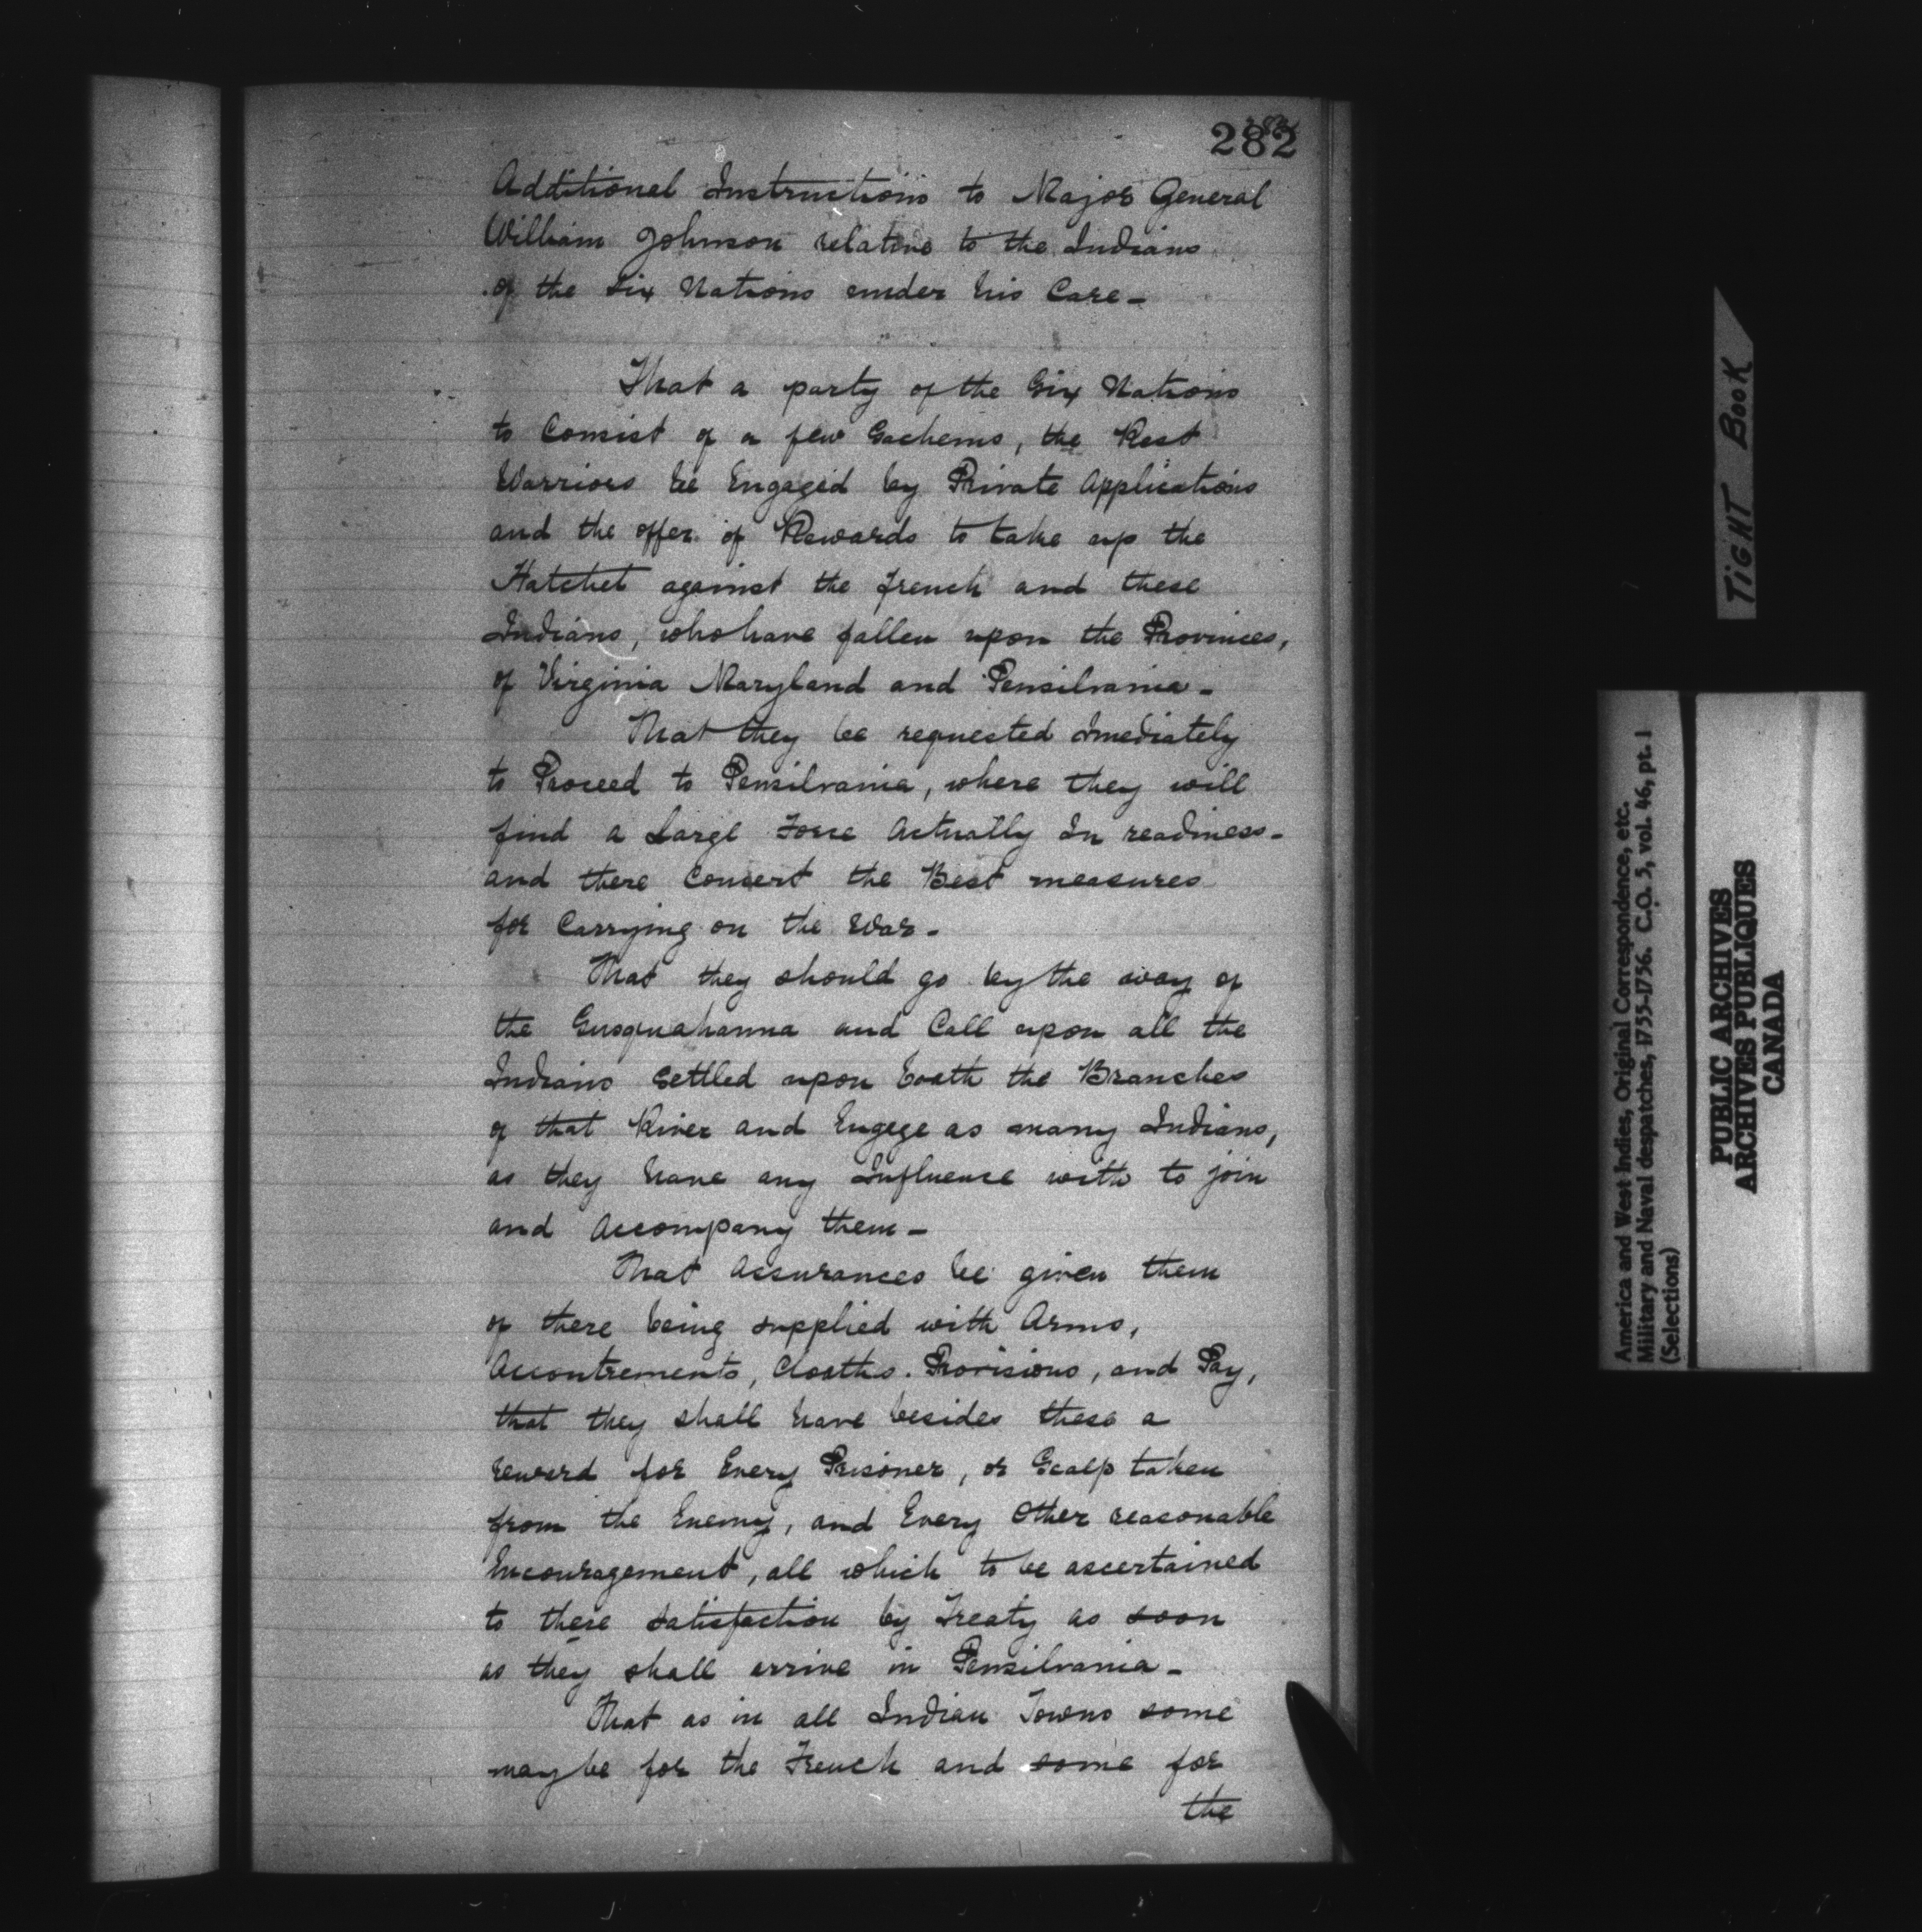 282
Additional Instructions to Major General
William Johnson relative to the Indians
of the Six Nations under his Care -
That a party of the Six Nations
to Consist of a few Sachems, the Rest
Warriors be Engaged by Private Applications
and the offer of Rewards to take up the
Hatchet against the french and these
Indians, who have fallen upon the Provinces,
of Virginia Maryland and Pensilvania -
That they be requested Imediately
to Proceed to Pensilvania, where they will
find a Large Force Actually In readiness -
and there Concert the Best measures
for Carrying on the War -
That they should go by the way of
the Susquahanna and Call upon all the
Indians Settled upon boath the Branches
of that River and Engege as many Indians,
as they have any Influence with to join
and Accompany them -
That Assurances be given them
of there being supplied with Arms,
Accoutrements, Cloaths. Provisions, and Pay,
that they shall have besides these a
reward for Every Prisoner, or Scalp taken
from the Enemy, and Every Other reasonable
Encouragement, all which to be ascertained
to there Satisfaction by Treaty as soon
as they shall arrive in Pensilvania -
That as in all Indian Towns some
may be for the French and some for
the
TIGHT BOOK
America and West Indies, Original Correspondence, etc.
Military and Naval despatches, 1755-1756. C.O. 5, vol. 46, pt. 1
(Selections)
PUBLIC ARCHIVES
ARCHIVES PUBLIQUES
CANADA